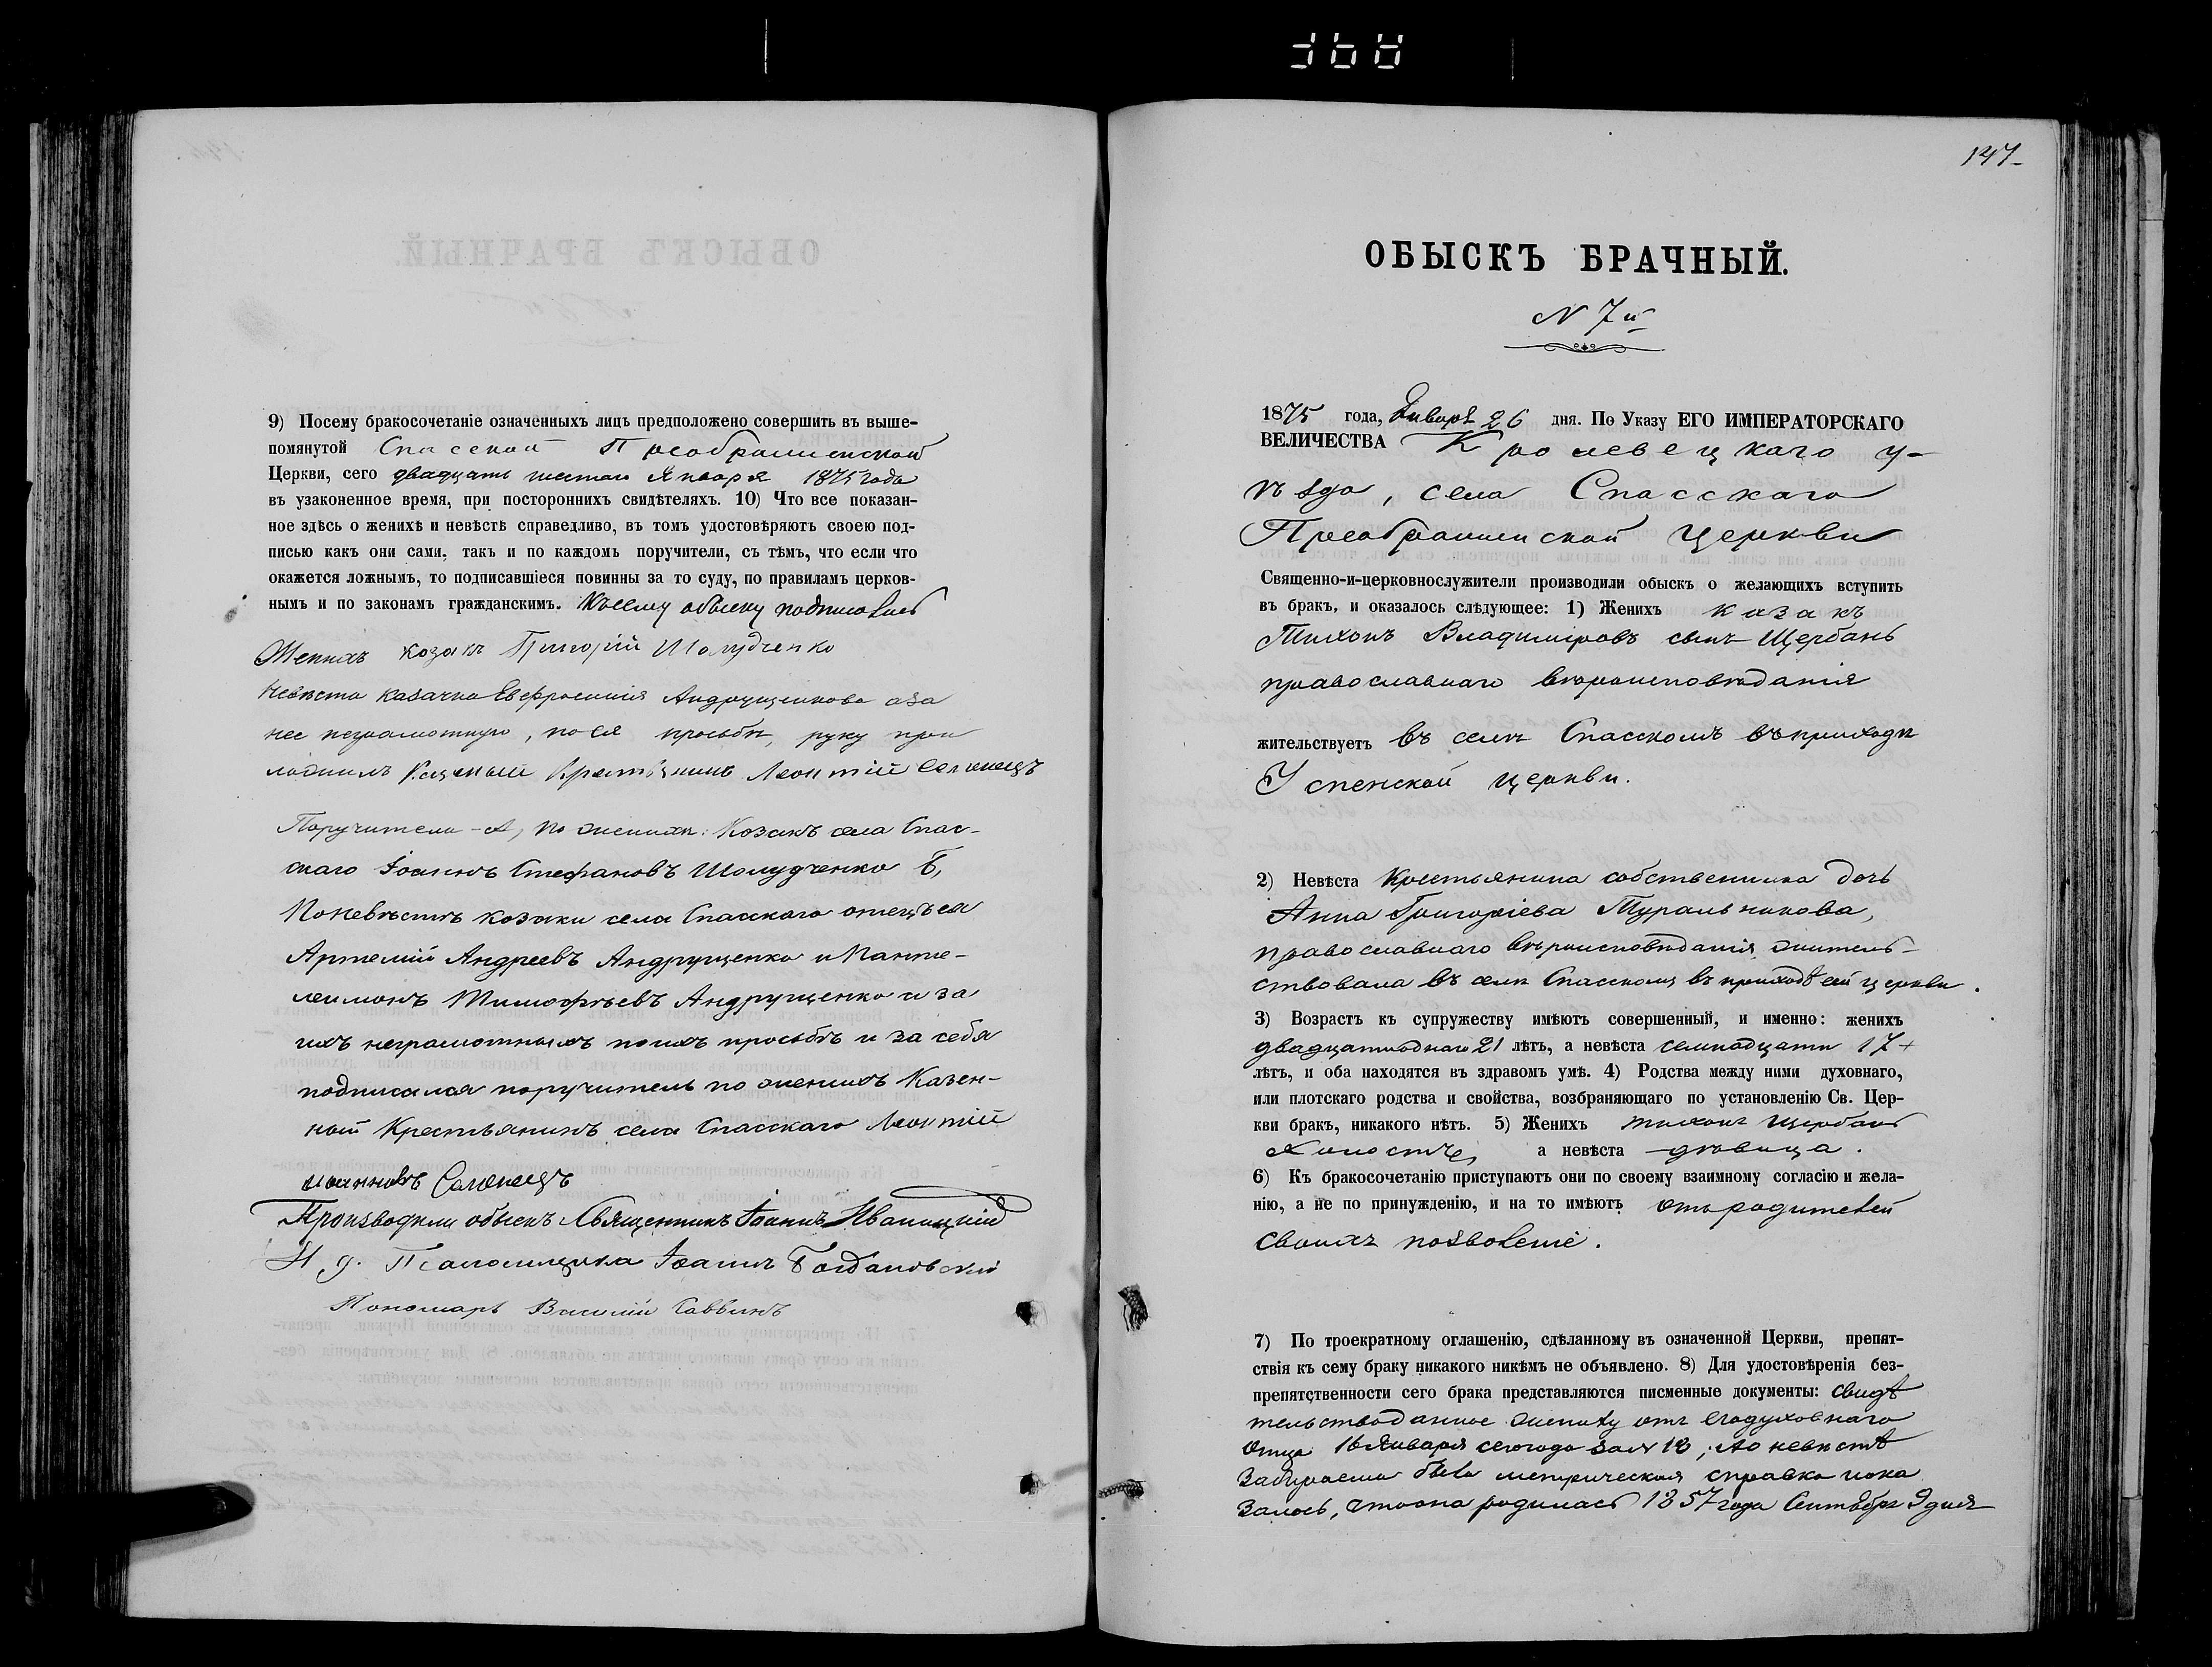 9) Посему бракосочетаніе означенныхъ лицъ предположено совершить въ выше-
помянутой Спасской Преображенской
Церкви, сего двадцать шестаго Января 1875 года
въ узаконенное время, при постороннихъ свидѣтеляхъ. 10) Что все показан-
ное здѣсь о женихѣ и невѣстѣ справедливо, въ томъ удостовѣряютъ своею под-
писью какъ они сами, такъ и по каждомъ поручители, съ тѣмъ, что если что
окажется ложнымъ, то подписавшіеся повинны за то суду, по правиламъ церков-
нымъ и по законамъ гражданскимъ. Къ сему обыску подписались
Женихъ козакъ Григорій Шолудченко
Невѣста казачка Евфросинія Андрущенкова а за
нее неграмотную, по ея просьбѣ, руку при
ложилъ Казеный Крестьянинъ Леонтій Селюнецъ
Поручители - А, по женихѣ: Козакъ села Спас-
скаго Іоаннъ Стефановъ Шолудченко Б,
По невѣстѣ козаки села Спасскаго отецъ ея
Артемій Андреевъ Андрущенко и Панте-
леимонъ Тимофѣевъ Андрущенко и за
ихъ неграмотныхъ по ихъ просьбѣ и за себя
подписался поручитель по женихѣ Казен-
ный Крестьянинъ села Спасскаго Леонтій
Иванновъ
Производили обыскъ Священникъ Іоаннъ Иваницкій
И. д. Псаломщика Іоаннъ Богдановскій
Пономарь Василій Саввинъ
147
ОБЫСКЪ БРАЧНЫЙ.
N 7й
1875 года, Января 26 дня. По Указу ЕГО ИМПЕРАТОРСКАГО
ВЕЛИЧЕСТВА Кролевецкаго у-
ѣзда, села Спасскаго
Преображенской церкви
Священно-и-церковнослужители производили обыскъ о желающихъ вступить
въ бракъ, и оказалось слѣдующее: 1) Женихъ казакъ
Тихонъ Владиміровъ сынъ Щербань
православнаго вѣроисповѣданія
жительствуетъ въ селѣ Спасскомъ въ приходѣ
Успенской церкви.
2) Невѣста Крестьянина собственника дочь
Анна Григоріева Туральникова,
православнаго вѣроисповѣданія, житель-
ствовала въ селѣ Спасскомъ въ приходѣ сей церкви.
3) Возрастъ къ супружеству имѣютъ совершенный, и именно: женихъ
двадцатиоднаго 21 лѣтъ, а невѣста семнадцати 17
лѣтъ, и оба находятся въ здравомъ умѣ. 4) Родства между ними духовнаго,
или плотскаго родства и свойства, возбраняющаго по установленію Св. Цер-
кви бракъ, никакого нѣтъ. 5) Женихъ Тихонъ Щербань
холостъ, а невѣста дѣвица.
6) Къ бракосочетанію приступаютъ они по своему взаимному согласію и жела-
нію, а не по принужденію, и на то имѣютъ отъ родителей
своихъ позволеніе.
7) По троекратному оглашенію, сдѣланному въ означенной Церкви, препят-
ствія къ сему браку никакого никѣмъ не объявлено. 8) Для удостовѣренія без-
препятственности сего брака представляются писменные документы: свидѣ
тельство данное жениху отъ его духовнаго
отца 16 Января сего года за N 12, А о невѣстѣ
забираема была метрическая справка и ока
залось, что она родилась 1857 года Сентября 9 дня